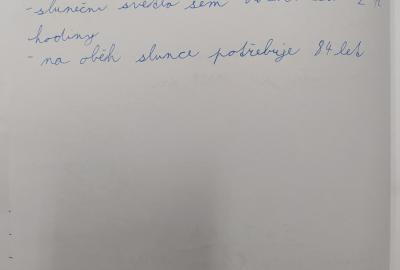 - sluneční světlo sem
hodiny
- na oběh slunce potřebuje 84 let